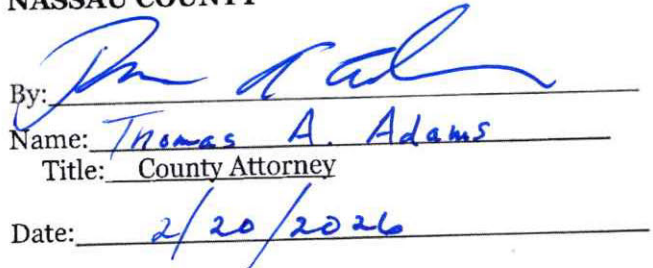 NASSAU COUNTY
By:
Name: Thomas A. Adams
Title: County Attorney
Date: 2/20/2026